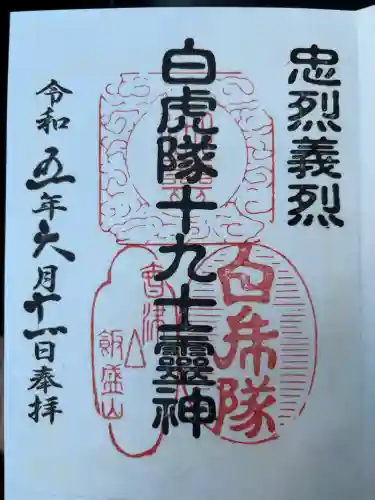 忠烈義烈
白虎隊十九士靈神
白虎隊
會津
飯盛山
令和五年六月十一日奉拝